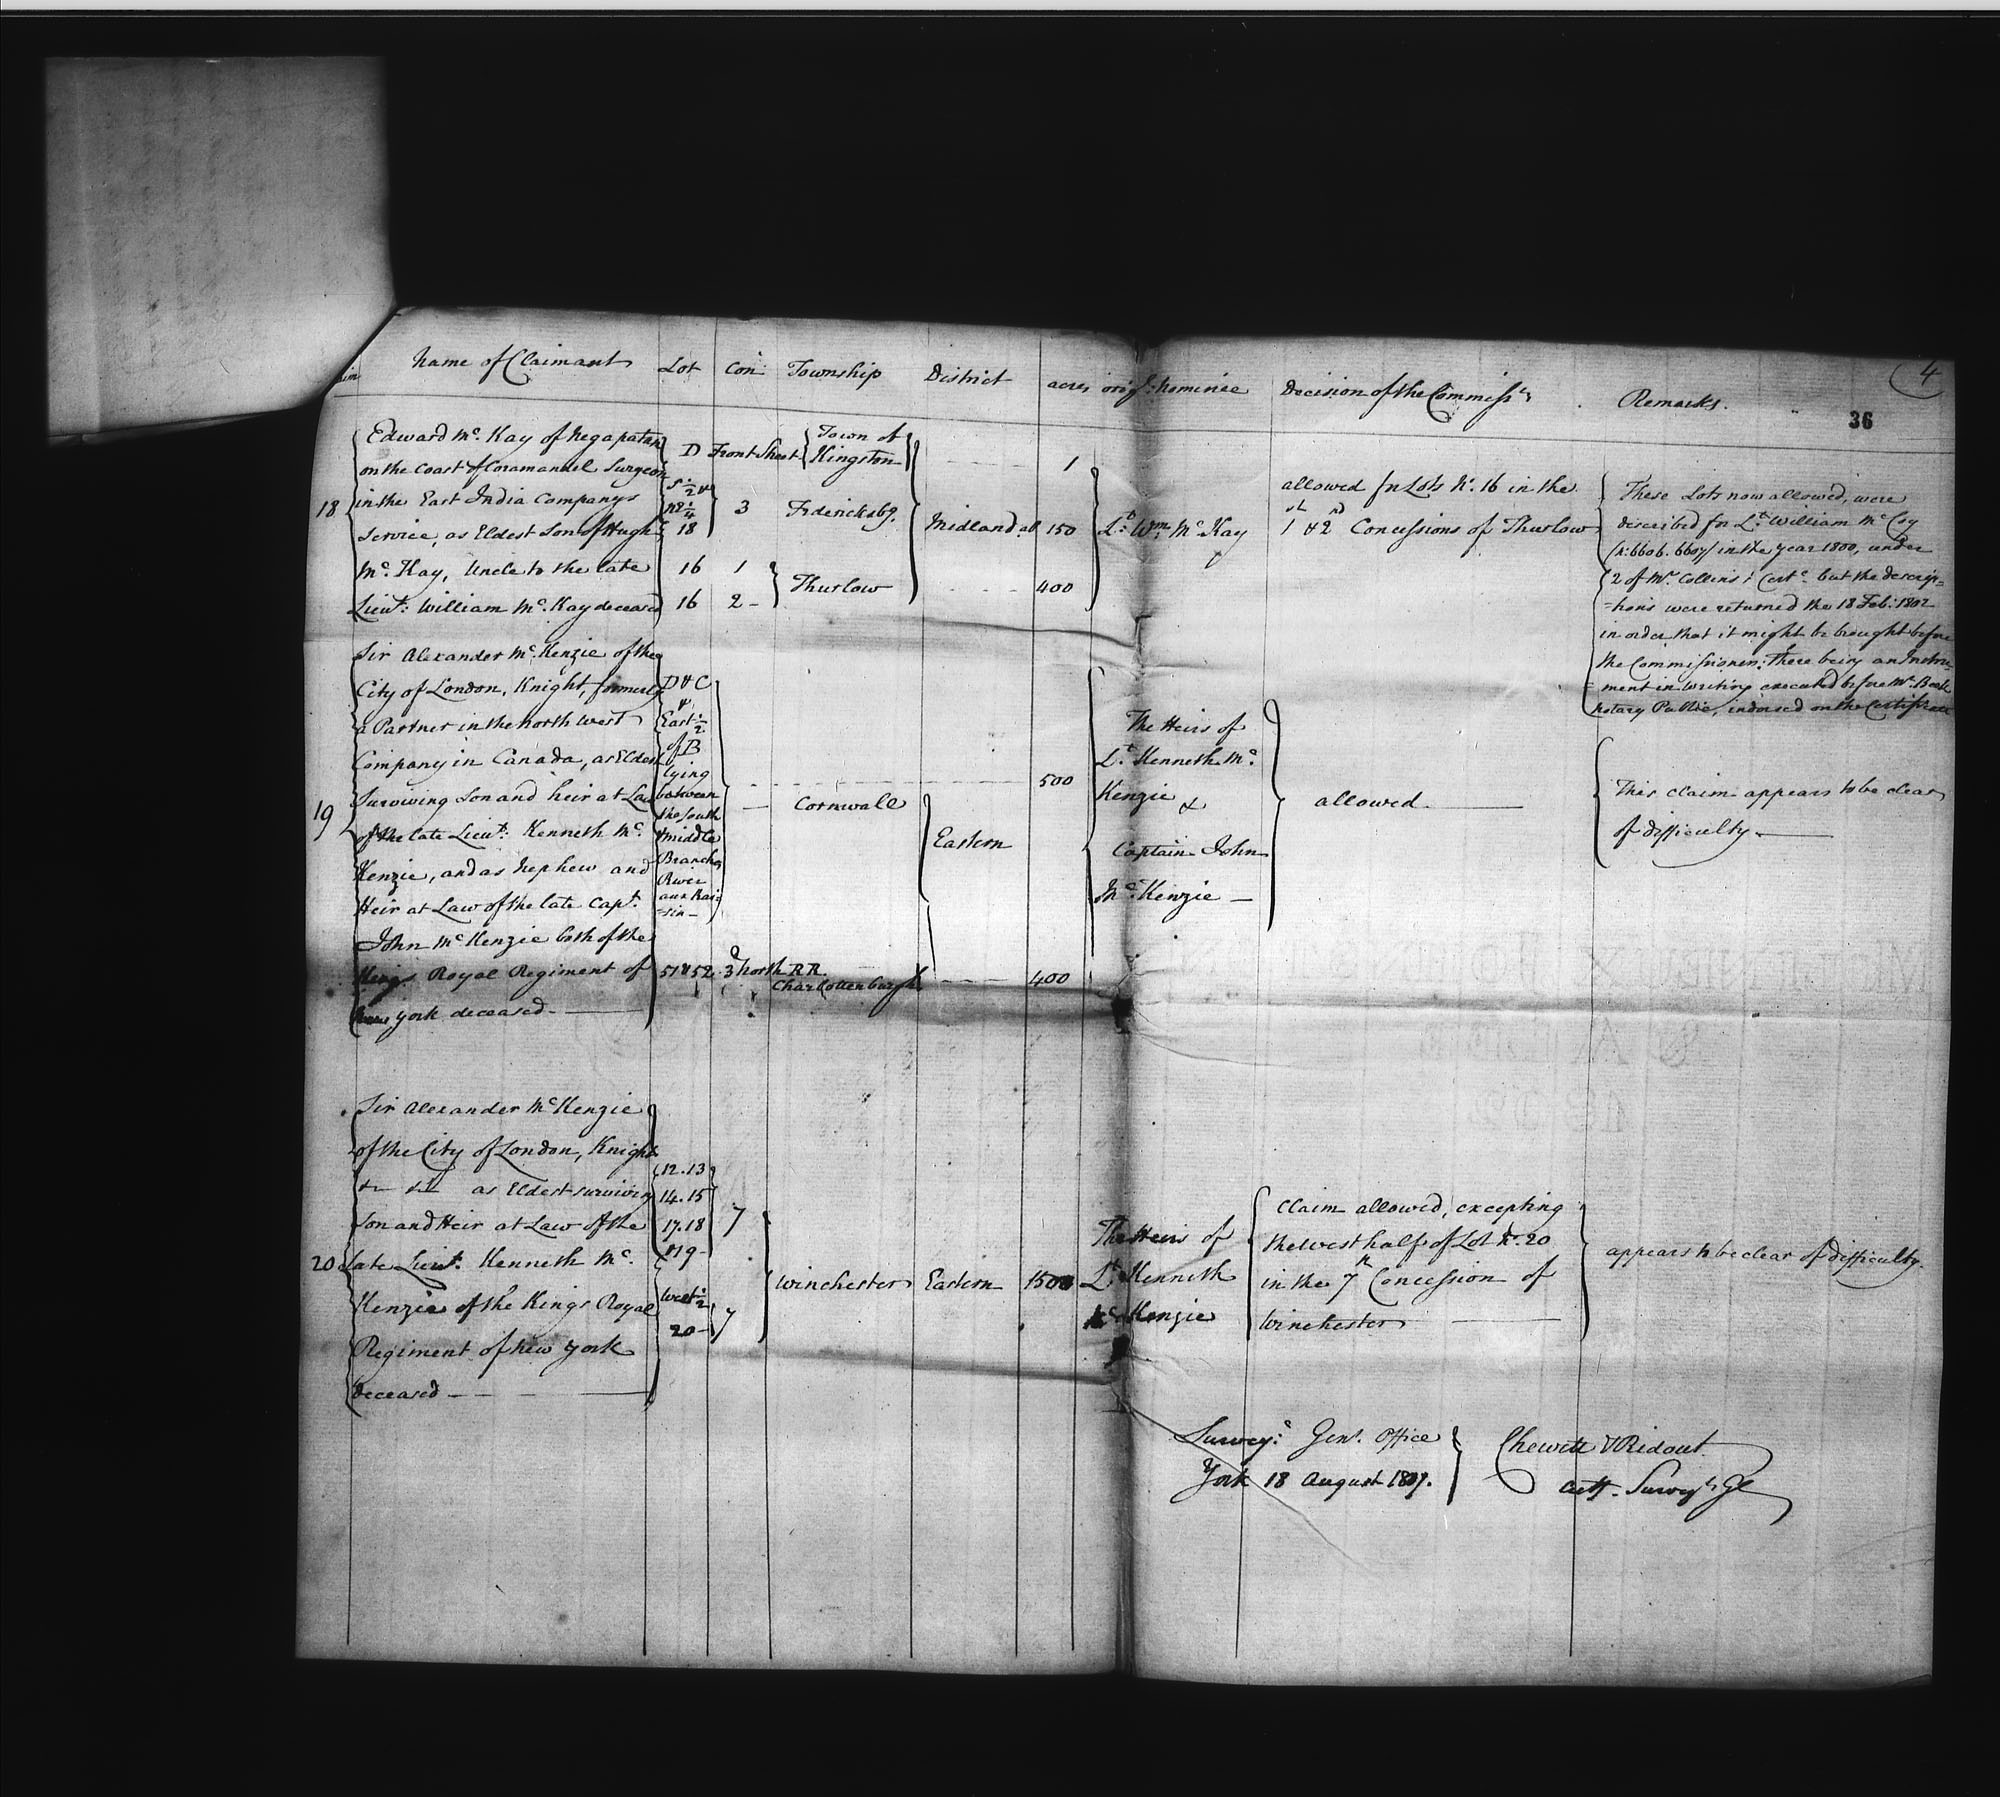 4
36
Name of Claimant Lot Con: Township District acres orig.l Nominee Decision of the Commiss.rs Remarks.
18
Edward Mc. Kay of Negapatam
on the Coast of Coramandel Surgeon
in the East India Companys
Service, as Eldest Son of Hugh
Mc. Kay, Uncle to the late
Lieut: William Mc. Kay deceased
D Front Street Town of Kingston 1
S. 1/2 &
NE 1/4
18 3 Fredericksbg. Midland 150
16 1
16 2 -
Thurlow 400
Lt. Wm. Mc Kay
allowed for Lots No. 16 in the
1st & 2nd Concessions of Thurlow
These Lots now allowed, were
described for Lt. William Mc Coy
in the year 1800, under
2 of Mr. Collins's Certs. but the descrip=
=tions were returned the 18 Feb: 1802
in order that it might be brought before
the Commissioners. There being an Instru=
=ment in writing executed before Mr. Beek
Notary Public, indorsed on the Certificate
19
Sir Alexander Mc. Kenzie of the
City of London, Knight, formerly
a Partner in the North West
Company in Canada, as Eldest
Surviving Son and heir at Law
of the late Lieut. Kenneth Mc.
Kenzie, and as Nephew and
Heir at Law of the late Capt.
John Mc Kenzie both of the
Kings Royal Regiment of
New York deceased. —
D & C
&
East 1/2
of B
lying
between
the South
& middle
Branches
River
aux Rai=
=sin -
— Cornwall Eastern 500
51 & 52 3d North RR.
Charlottenburgh 400
The Heirs of
Lt. Kenneth Mc.
Kenzie &
Captain John
Mc. Kenzie —
allowed. —
This claim appears to be clear
of difficulty. —
20
Sir Alexander Mc Kenzie
of the City of London, Knight
&c &c as Eldest surviving
Son and Heir at Law of the
late Lieut. Kenneth Mc.
Kenzie of the Kings Royal
Regiment of New York
deceased —
12. 13
14. 15
17. 18
& 19 -
7
West 1/2
20 -
7
Winchester Eastern 1500
The Heirs of
Lt. Kenneth
Mc Kenzie
Claim allowed, excepting
the west half of Lot No. 20
in the 7th Concession of
Winchester —
appears to be clear of difficulty.
Survey.r Genl. Office
York 18 August 1807.
Chewett & Ridout
Actg. Survey.rs Gl